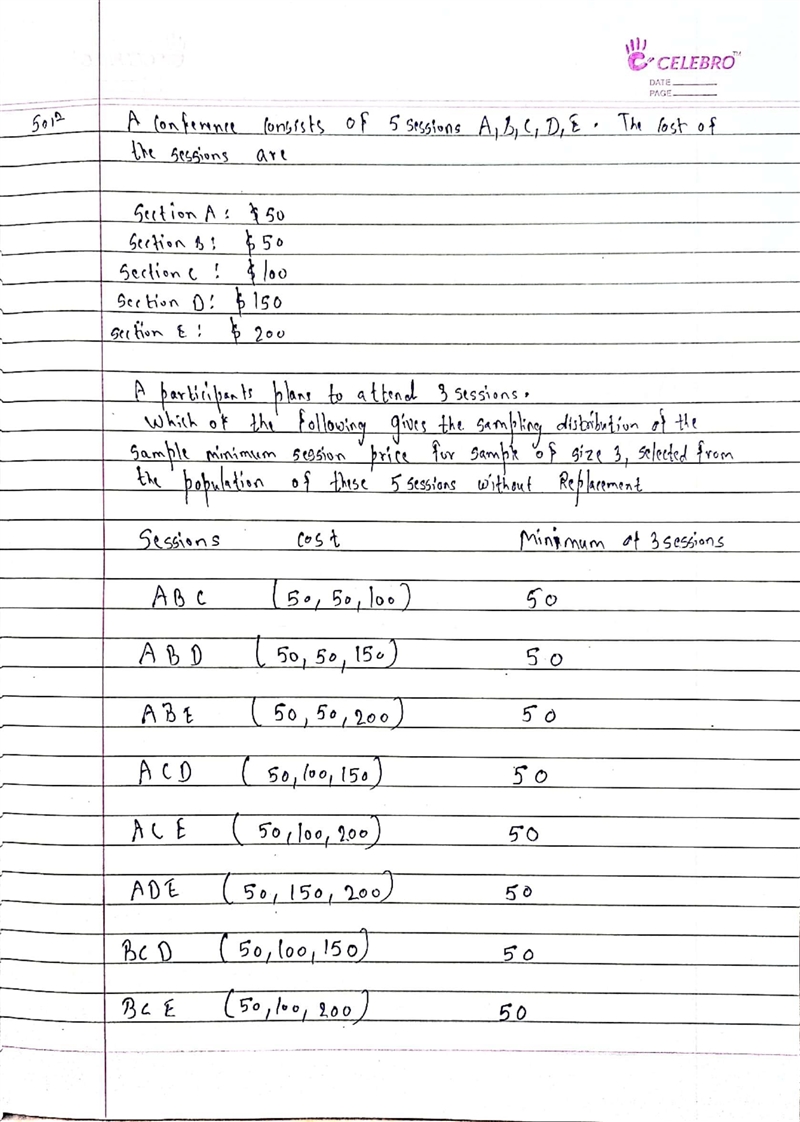 CELEBRO™
DATE
PAGE
Soln A Conference Consists of 5 sessions A, B, C, D, E. The Cost of
the sessions are
Section A: $50
Section B: $50
Section C: $100
Section D: $150
Section E: $200
A participants plans to attend 3 sessions.
Which of the following gives the sampling distribution of the
sample minimum session price for sample of size 3, selected from
the population of these 5 sessions without Replacement
Sessions Cost Minimum of 3 sessions
ABC (50, 50, 100) 50
ABD (50, 50, 150) 50
ABE (50, 50, 200) 50
ACD (50, 100, 150) 50
ACE (50, 100, 200) 50
ADE (50, 150, 200) 50
BCD (50, 100, 150) 50
BCE (50, 100, 200) 50